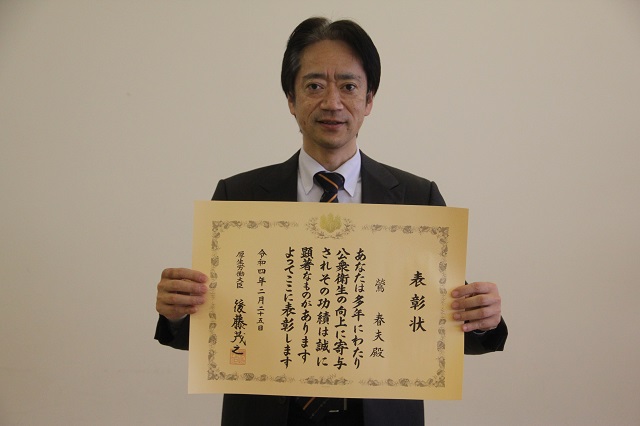 表彰状
鶯 春夫殿
あなたは多年にわたり
公衆衛生の向上に寄与
されその功績は誠に
顕著なものがあります
よってここに表彰します
令和四年二月二十五日
厚生労働大臣 後藤茂之